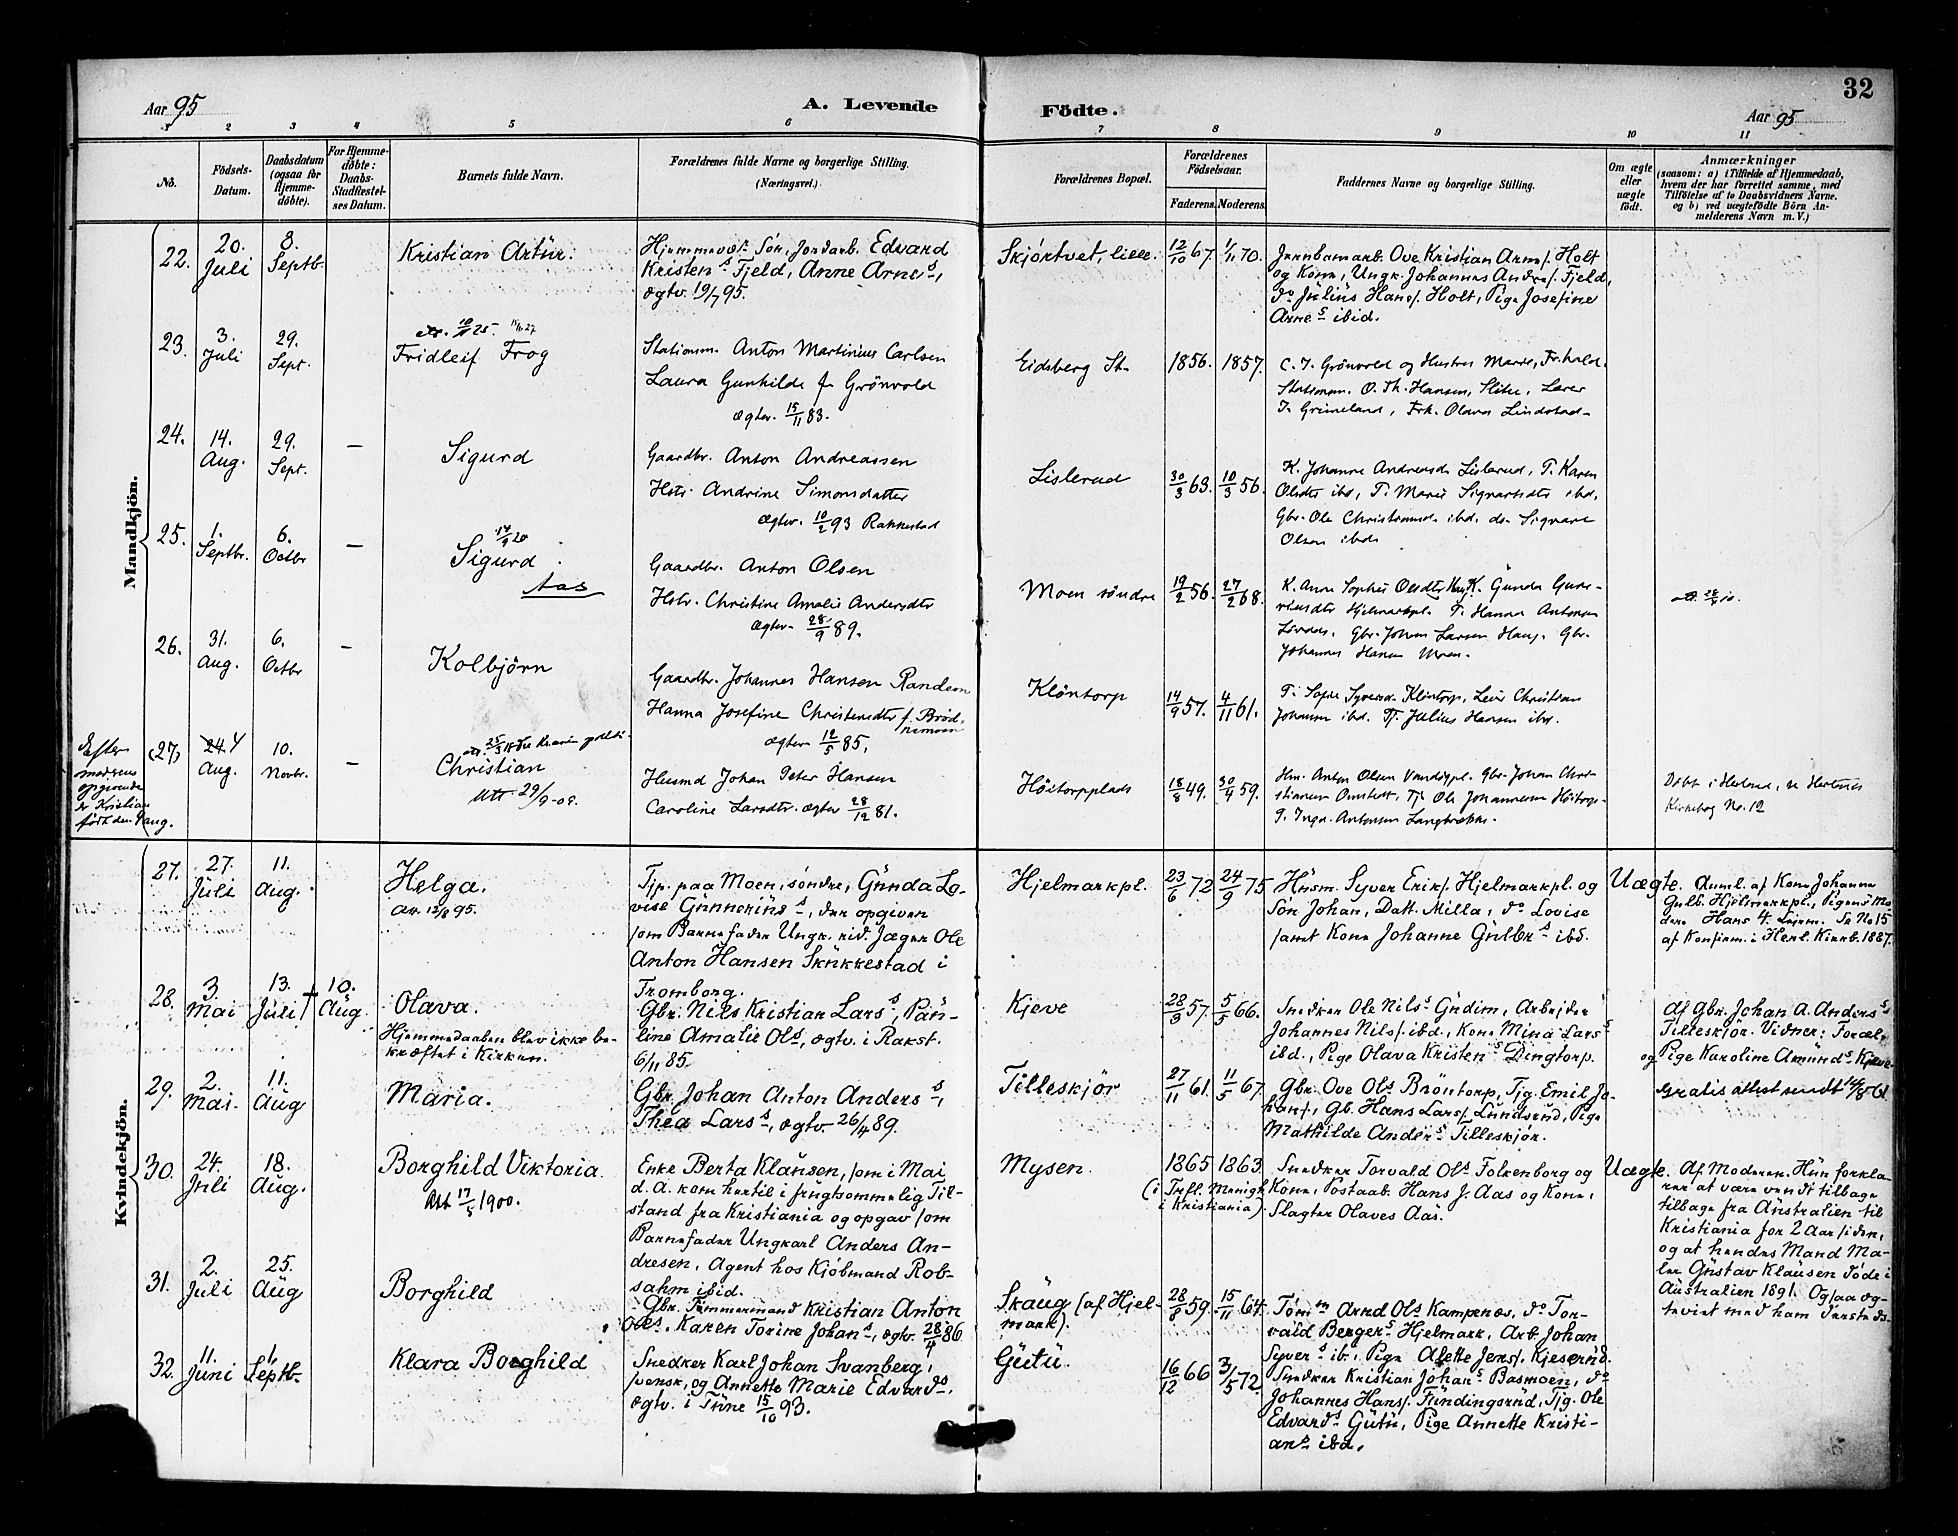 32
Aar 95
A. Levende Födte.
Aar 95
1 2 3 4 5 6 7 8 9 10 11
No.
Födsels-Datum.
Daabsdatum (ogsaa for Hjemme-döbte).
For Hjemme-döbte: Daabs-Stadfæstel-ses Datum.
Barnets fulde Navn.
Forældrenes fulde Navne og borgerlige Stilling.
(Næringsvei.)
Forældrenes Bopæl.
Forældrenes Födselsaar.
Faderens. Moderens.
Faddernes Navne og borgerlige Stilling.
Om ægte eller uægte födt.
Anmærkninger
(saasom: a) i Tilfælde af Hjemmedaab,
hvem der har forrettet samme, med
Tilföielse af to Daabsvidners Navne,
og b) ved uægtefödte Börn An-
melderens Navn m. V.)
Mandkjön.
22.
20. Juli
8. Septb.
Kristian Artur.
Hjemmevær. Sön, Jordarb. Edvard
Kristens Fjeld, Anne Arnes,
ægtv. 19/7 95.
Skjörtvet, lille.
12/10 67.
1/11 70.
Jernbanearb. Ove Kristian Arnes. Holt
og Kone, Ungk. Johannes Andrs. Fjeld,
do Julius Hans. Holt, Pige Josefine
Arnes ibid.
23.
3. Juli
29. Sept.
Fridleif Frog
Stationsm. Anton Martinius Carlsen
Laura Gunhilde f. Grönvold
ægtev. 15/11 83.
Eidsberg St.
1856.
1857.
C. J. Grönvold og Hustru Marie,
Stationsm. O. Th. Hansen, Slitu, Lærer
J. Grimeland, Frk. Olava Lindstad
24.
14. Aug.
29. Sept.
–
Sigurd
Gaardbr. Anton Andreassen
Hstr. Andrine Simonsdatter
ægtev. 10/2 93 Rakkestad
Lislerud
30/3 63.
10/3 56.
K. Johanne Andreasd. Lislerud, P. Karen
Olsdtr ibd, P. Marie Sigvartsdtr ibd,
Gbr. Ole Christians. ibd. do. Sigvart
Olsen ibd.
25.
1. Septbr.
6. Octbr
–
17/9 20
Sigurd.
Aas
Gaardbr. Anton Olsen
Hstr. Christine Amalie Andersdtr
ægtev. 28/9 89.
Moen söndre
19/2 56.
27/2 68.
K. Anne Sophie Olsdtr Haug. K. Gunda Gune-
riusdtr Hjelmarkpl. P. Hanna Antonsen
Gbr. Johan Larsen Haug. Gbr.
Johannes Hansen Moen.
26.
31. Aug.
6. Octbr
–
Kolbjörn
Gaardbr. Johannes Hansen Randem
Hanna Josefine Christensdtr f. Bröd-
ægtev. 12/5 85,
Klöntorp
14/9 57.
4/11 61.
P. Sofie Syversd. Klöntorp, Leie Christian
Johansen ibd. Tj. Julius Hansen ibd.
Efter
moderens
opgivende
er Kristian
född den 4 aug.
(27)
24 4 Aug.
10. Novbr.
–
Christian
Utt 29/9-09.
Husmd Johan Peter Hansen
Caroline Larsdtr. ægtev 28/12 81.
Höitorpplads
18/8 49.
30/9 59.
Hm. Anton Olsen Gbr. Johan Chri-
stiansen Omstedt, Tj. Ole Johannesen Höitorp
P. Inga Antonsen Langbrække.
Döbt i Hærland, se Herlands
Kirkebog No. 12
Kvindekjön.
27.
27. Juli
11. Aug.
Helga.
Att. 12/8 95.
Tjp. paa Moen, söndre, Gunda Lo-
vise Gunneriuss, der opgiver
som Barnefader Ungk. rid. Jæger Ole
Anton Hansen Skukkestad i
Tromborg.
Hjelmarkpl.
23/6 72
24/9 75
Husm. Syver Eriks. Hjelmarkpl. og
Sön Johan, Datt. Milla, do Lovise
samt Kone Johanne Gulbrs ibd.
Uægte.
Anml. af Kone Johanne
Gulb. Hjelmarkpl., Pigens Mo-
der. Hans 4. Leierm. Se No 15
af Konfirm. i Herl. Kirkb. 1887.
28.
3 Mai
13. Juli
†
10. Aug.
Olava.
Hjemmedaaben blev ikke be-
kræftet i Kirken.
Gbr. Nils Kristian Larss, Pau-
line Amalie Ols, ægtv. i Rakst.
6/11 85.
Kjeve
28/8 57.
5/5 66.
Snedker Ole Nilss Gudim, Arbejder
Johannes Nils. ibd., Kone Mina Larss
ibd., Pige Olava Kristens Dingtorp.
Af Gbr. Johan A. Anderss
Tilleskjör. Vidner: Foræl.
og Pige Karoline Amunds Kjeve.
29.
2. Mai.
11. Aug
Maria.
Gbr. Johan Anton Anderss,
Thea Larss, ægtv. 26/4 89.
Tilleskjör
27/11 61.
11/5 67.
Gbr. Ove Ols Bröntorp, Tjg. Emil Jo-
hans., Gb. Hans Lars. Lundsrud, Pige
Mathilde Anders Tilleskjör.
Gratis attest sendt 14/8 61
30.
24. Juli
18. Aug.
Borghild Viktoria.
Att 17/5 1900.
Enke Berta Klausen, som i Mai
d. A. kom hertil i frugtsommelig Til-
stand fra Kristiania og opgav som
Barnefader Ungkarl Anders An-
dresen, Agent hos Kjöbmand Rob-
sahm ibid.
Mysen.
1865
1863.
(i Trefl. Menigh. i Kristiania).
Snedker Torvald Ols Folkenborg og
Kone, Postaab. Hans J. Aas og Kone,
Slagter Olaves Aas.
Uægte.
Af Moderen. Hun forkla-
rer at være vendt tilbage
tilbage fra Australien til
Kristiania for 2 Aar siden,
og at hendes Mand Ma-
ler Gustav Klausen döde i
Australien 1891. Ogsaa æg-
teviet med ham dersteds.
31.
2. Juli
25. Aug
Borghild
Gbr. Tömmermand Kristian Anton
Oles. Karen Torine Johans, ægtv. 28/4 86
Skaug (af Hjel-
mark).
28/8 59.
15/11 64.
Tömm Arnd Ols Kampenes, do Tor-
vald Bergers Hjelmark, Arb. Johan
Syvers ib., Pige Alette Jens. Kjeserud.
32.
11. Juni
1. Septb.
Klara Borghild
Snedker Karl Johan Svanberg,
svensk, og Annette Marie Edvards,
ægtv. i Tune 15/10 93.
Gutu.
16/12 66
3/5 72.
Snedker Kristian Johans Basmoen, do
Johannes Hans. Fundingsrud, Tjg. Ole
Edvards Gutu, Pige Annette Kristi-
ans ibd.